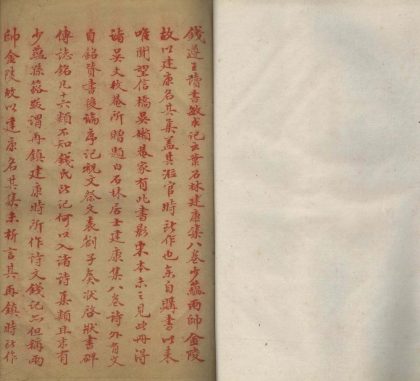 錢遵王讀書敏求記云葉石林建康集八卷少蘊兩帥金陵
故以建康名其集蓋其涖官時所作也余自購書以來
唯聞望信橋吳嬾菴家有此書影宋本未之見此冊得
諸吴文枚菴所贈題曰石林居士建康集八卷詩外有文
自銘贊書後論序記祝文祭文表劄子奏狀啓狀書碑
傳誌銘凡十六類不知錢氏此記何以入諸詩集類且末有
少蘊孫簵跋謂再鎮建康時所作詩文錢記只但稱兩
帥金陵故以建康名其集未析言其再鎮時所作